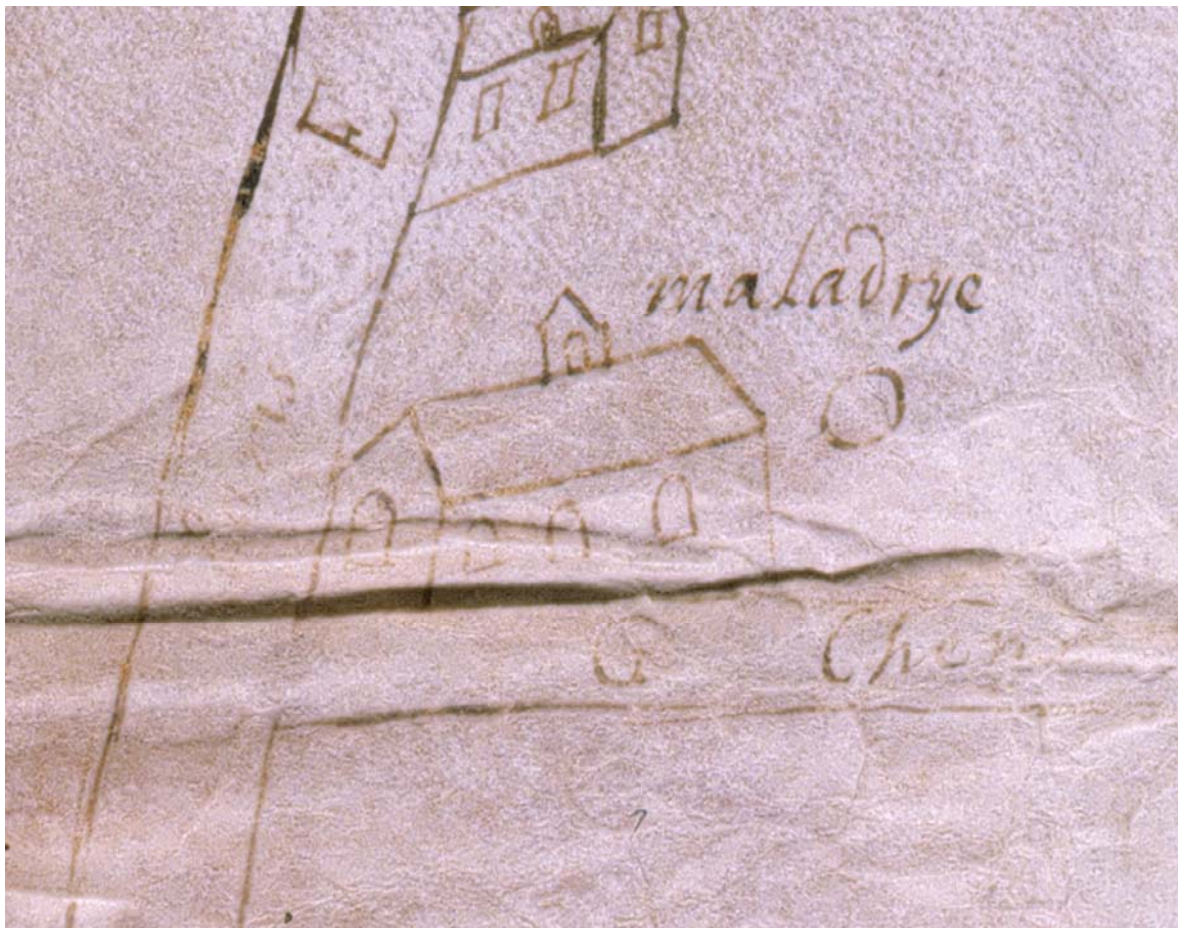 E
maladrye
O
G Chem